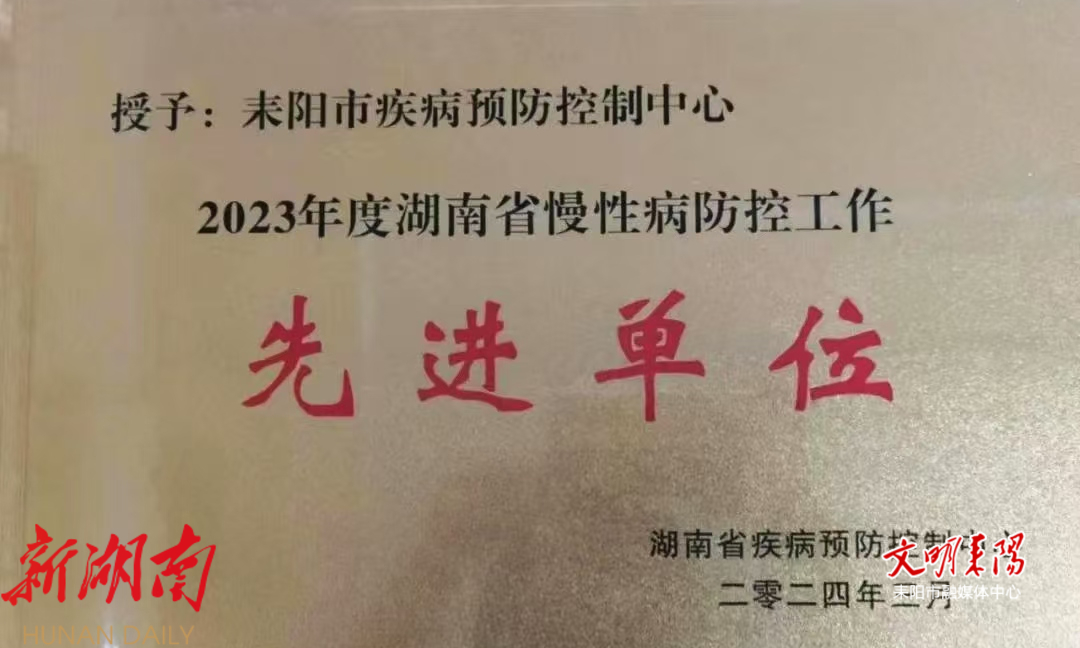 授予：耒阳市疾病预防控制中心
2023年度湖南省慢性病防控工作
先进单位
湖南省疾病预防控制中心
二零二四年三月
新湖南
HUNAN DAILY
文明耒阳
耒阳市融媒体中心